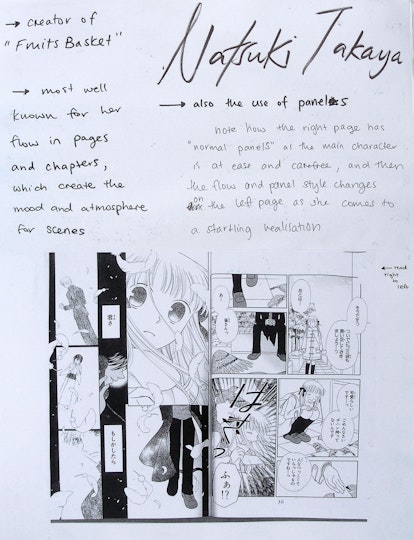 → creator of
"Fruits Basket"
Natsuki Takaya
→ most well
known for her
flow in pages
and chapters,
which create the
mood and atmosphere
for scenes
→ also the use of panels
note how the right page has
"normal panels" as the main character
is at ease and carefree, and then
the flow and panel style changes
on the left page as she comes to
a startling realisation
← read
right
to
left
君さ
もしかしたら
はっ
ふぁ!?